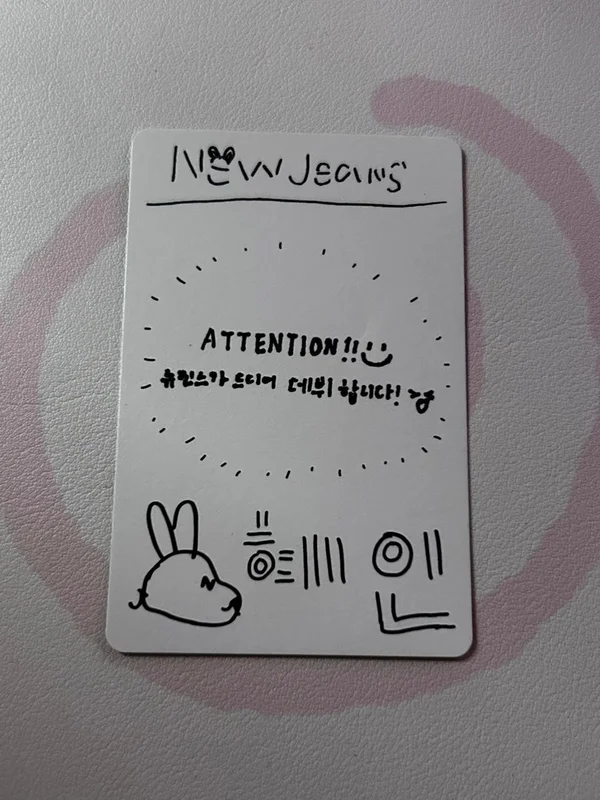 NEWJeans
ATTENTION!!
뉴진스가 드디어 데뷔 합니다!
혜인